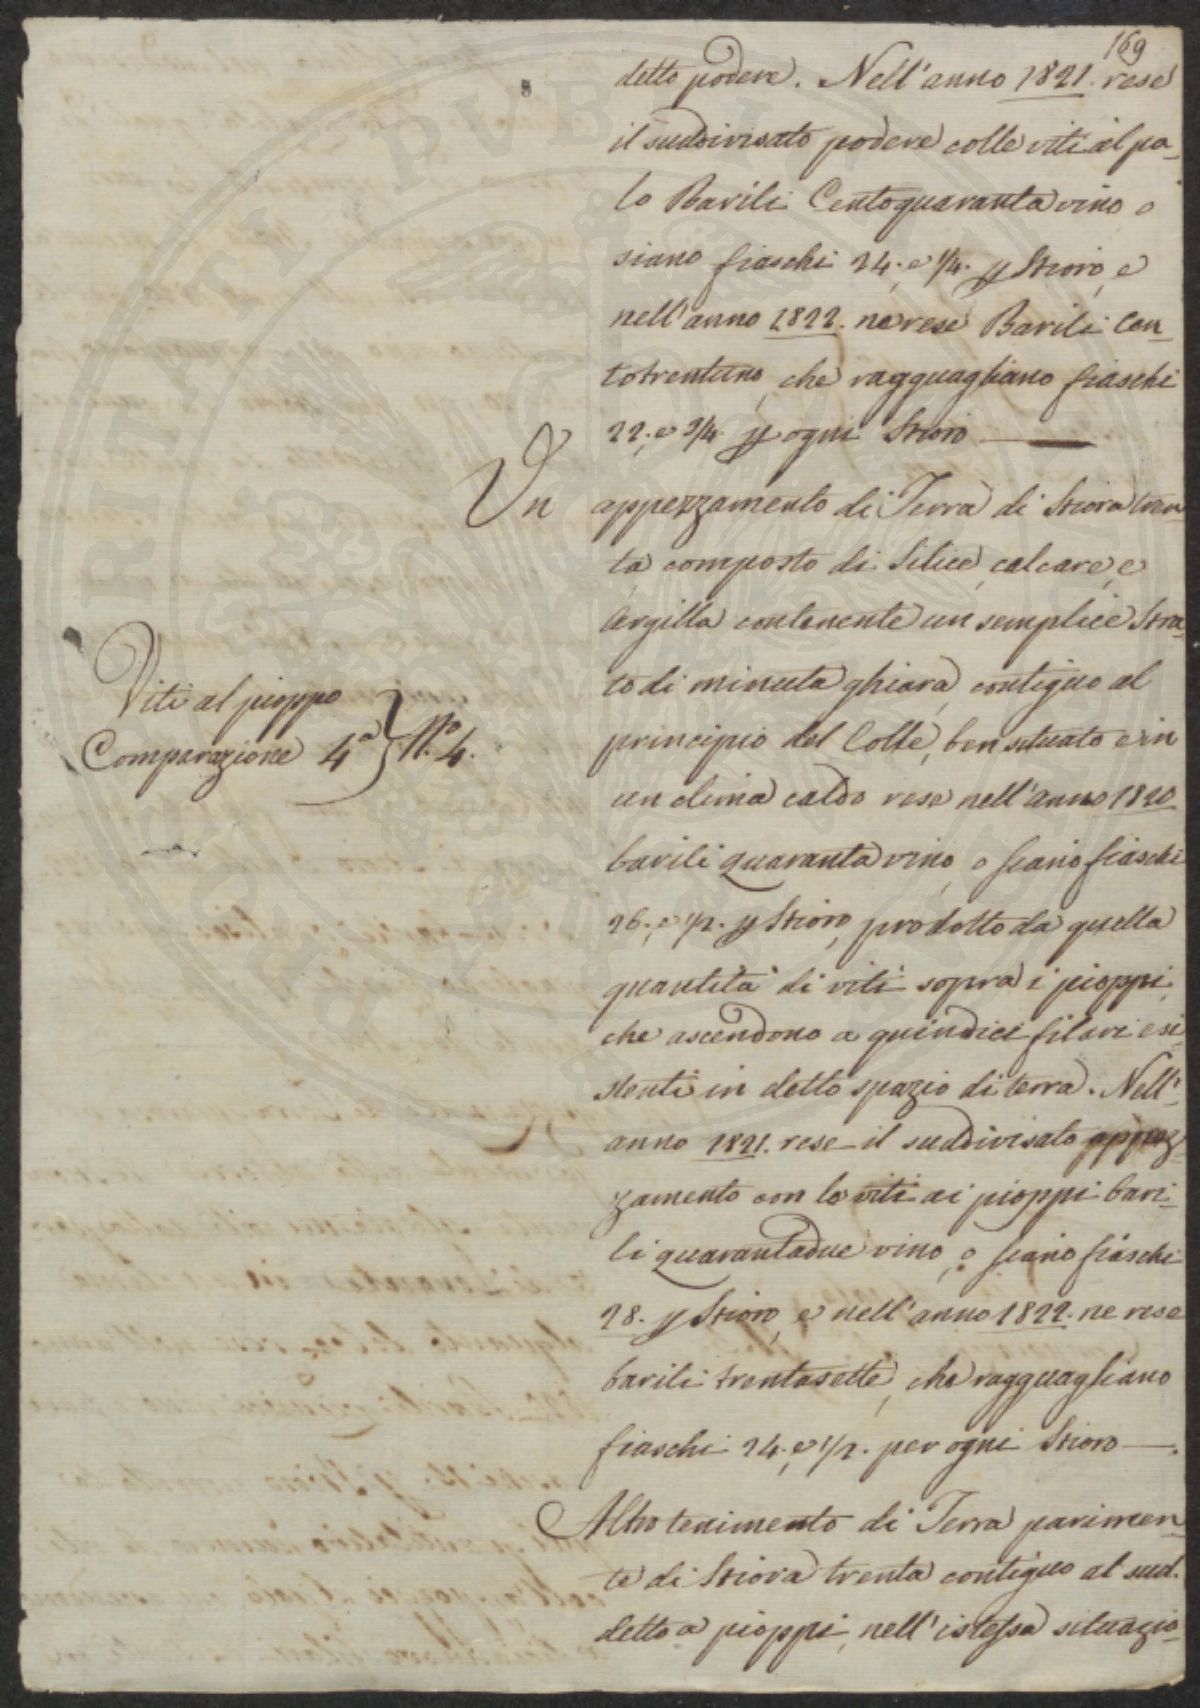 169
detto podere. Nell'anno 1821. rese
il suddivisato podere colle viti al pa-
lo Barili Centoquaranta vino o
siano fiaschi 24, e 1/4. p Stioro, e
nell'anno 1822. ne rese Barili Cen-
totrentuno, che ragguagliano fiaschi
22, e 3/4. p ogni Stioro
Un appezzamento di Terra di Stiora tren-
ta composto di Silice, calcare, e
Argilla contenente un semplice Stra-
to di minuta ghiara, contiguo al
principio del Colle, ben situato e in
un clima caldo rese nell'anno 1820
barili quaranta vino, o siano fiaschi
26, e 1/2. p Stioro, prodotto da quella
quantità di viti sopra i pioppi,
che ascendono a quindici filari esi-
stenti in detto spazio di terra. Nell'
anno 1821. rese il suddivisato appez-
zamento con le viti ai pioppi bari-
li quarantadue vino, o siano fiaschi
28. p Stioro, e nell'anno 1822. ne rese
barili trentasette, che ragguagliano
fiaschi 24, e 1/2. per ogni Stioro.
Altro tenimento di Terra parimen-
te di Stiora trenta contiguo al sud-
detto a pioppi, nell'istessa situazio-
Viti al pioppo
Comparazione 4ª } Nº 4.
RINATI PUBL